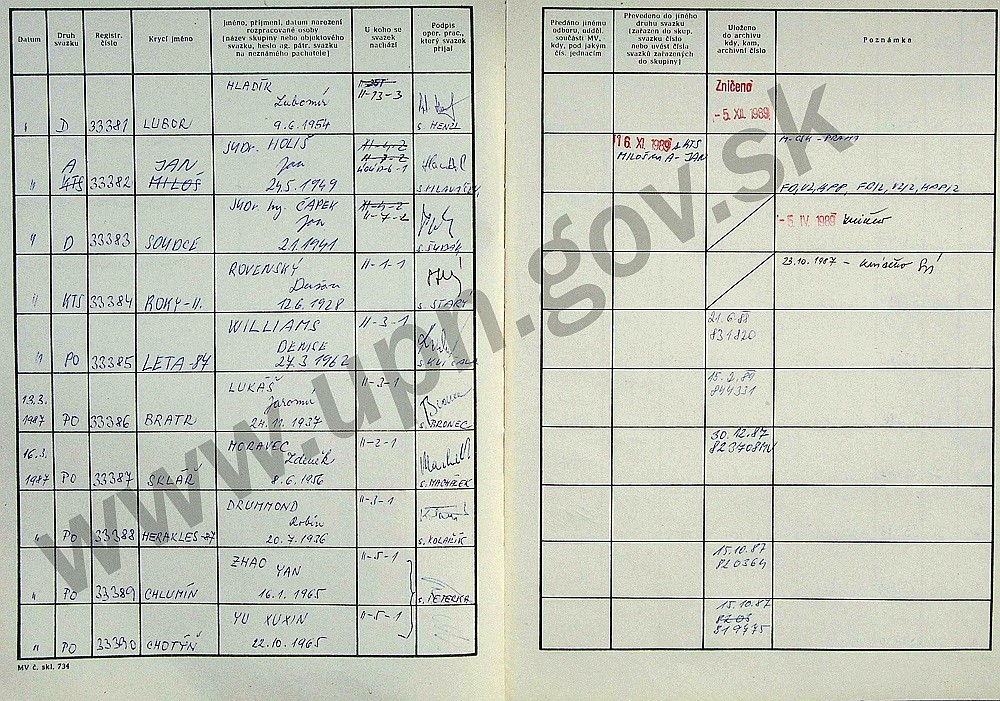 Datum
Druh svazku
Registr. číslo
Krycí jméno
Jméno, příjmení, datum narození
rozpracované osoby
(název skupiny nebo objektového
svazku, heslo ag. pátr. svazku
na neznámého pachatele)
U koho se
svazek
nachází
Podpis
oper. prac.,
který svazek
přijal
Předáno jinému
odboru, odděl.
součásti MV,
kdy, pod jakým
čís. jednacím
Převedeno do jiného
druhu svazku
(zařazen do skup.
svazku číslo
nebo uvést čísla
svazků zařazených
do skupiny)
Uloženo
do archivu
kdy, kam,
archivní číslo
Poznámka
HLADÍK
Lubomír
9.6.1954
" D 33381 LUBOR
II-13-3
s. HENZL
Zničeno
- 5. XII. 1989
JUDr. HOLIŠ
Jan
24.5.1949
A JAN
" KTS 33382 MILOŠ
s. HLAVÁČEK
16. XI. 1989 z KTS
MILOŠ na A - JAN
M-ČSK-PRAHA
JUDr. Ing. ČAPEK
Jan
2.1.1941
" D 33383 SOUDCE
II-7-2
- 5. IV. 1989 zničeno
ROVENSKÝ
Dušan
12.6.1928
" KTS 33384 ROKY-II.
II-1-1
s. STARÝ
23.10.1987 - zničeno
WILLIAMS
DENISE
27.3.1962
" PO 33385 LETA-87
II-3-1
s. KVÍČALA
21.6.88
831820
LUKÁŠ
Jaromír
24.11.1937
13.3.
1987 PO 33386 BRATR
II-3-1
s. BRONEC
15.2.89
844331
MORAVEC
Zdeněk
8.6.1956
16.3.
1987 PO 33387 SKLÁŘ
II-2-1
s. MACHALEK
30.12.87
823708MV
DRUMMOND
Robin
20.7.1936
" PO 33388 HERAKLES-87
II-3-1
s. KOLAŘÍK
ZHAO YAN
16.1.1965
" PO 33389 CHLUMÍN
II-5-1
s. PETERKA
15.10.87
820364
YU XUXIN
22.10.1965
" PO 33390 CHOTÝŇ
II-5-1
15.10.87
819475
MV č. skl. 734
www.upn.gov.sk